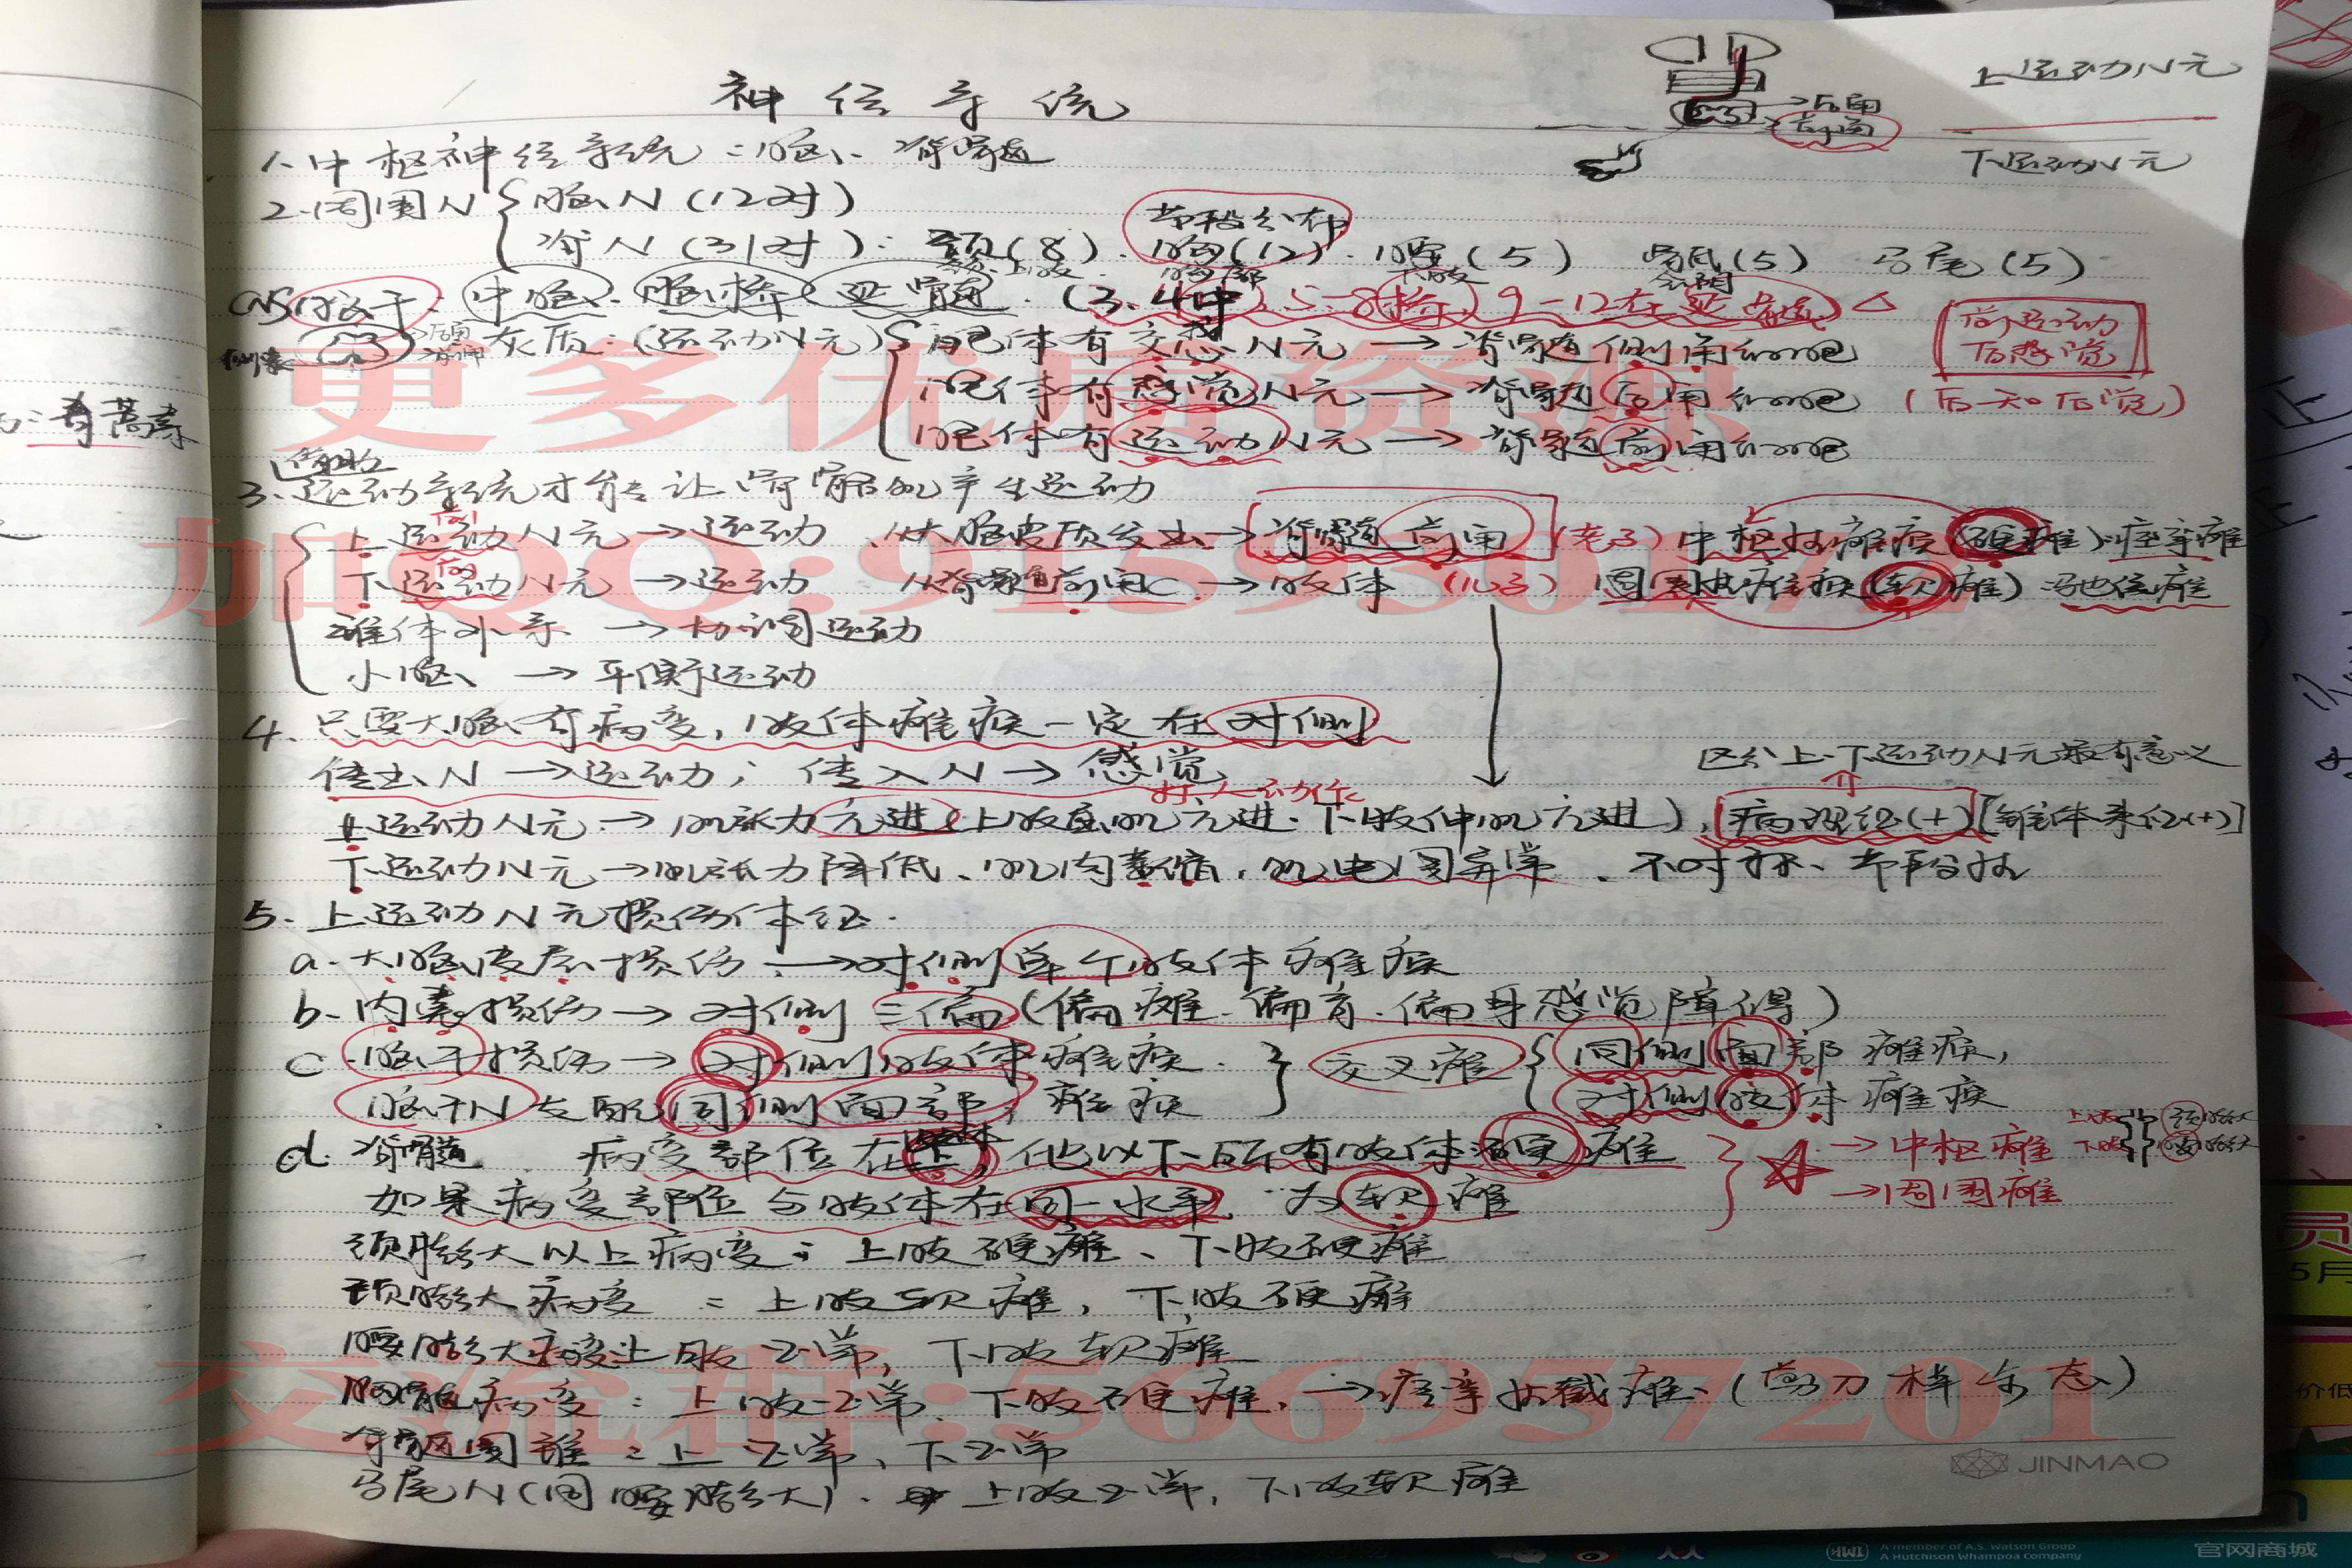 神经系统
上运动N元
→后角
→前角
下运动N元
1.中枢神经系统：脑、脊髓
2.周围N { 脑N (12对)
脊N (31对)：颈(8)、胸(12)、腰(5) 骶(5) 马尾(5)
节段分布
颈、上肢 胸部 下肢 会阴
CNS脑干：中脑、脑桥、延髓、(3、4中，5-8桥，9-12在延髓)△
前运动
后感觉
侧索
→后角
→前角
灰质：(运动N元) { 胞体有交感N元→脊髓侧角细胞
胞体有感觉N元→脊髓后角细胞 (后知后觉)
胞体有运动N元→脊髓前角细胞
3.运动系统才能让骨骼肌产生运动
上运动N元→运动 从大脑皮质发出→脊髓前角 (老子) 中枢性瘫痪(硬瘫)：痉挛瘫
下运动N元→运动 从脊髓前角C→肢体 (儿子) 周围性瘫痪(软瘫)：弛缓瘫
锥体外系→协调运动
小脑→平衡运动
4.只要大脑有病变，肢体瘫痪一定在对侧
传出N→运动；传入N→感觉
区分上下运动N元最有意义
上运动N元→肌张力亢进(上肢屈肌亢进、下肢伸肌亢进)，病理征(+)[锥体系征(+)]
下运动N元→肌张力降低、肌肉萎缩，肌电图异常、不对称、节段性
5.上运动N元损伤体征.
a.大脑皮层损伤：→对侧单个肢体瘫痪
b.内囊损伤→对侧三偏(偏瘫、偏盲、偏身感觉障碍)
c.脑干损伤→对侧肢体瘫痪. } 交叉瘫 { 同侧面部瘫痪，
脑干N支配同侧面部，瘫痪 对侧肢体瘫痪
上肢 颈膨大
下肢 腰膨大
d.脊髓. 病变部位在上，他以下所有肢体硬瘫 } ☆→中枢瘫
如果病变部位与肢体在同一水平，为软瘫 →周围瘫
颈膨大以上病变：上肢硬瘫、下肢硬瘫
颈膨大病变：上肢软瘫，下肢硬瘫
腰膨大病变：上肢正常，下肢软瘫
胸髓病变：上肢正常、下肢硬瘫，→痉挛性截瘫、(剪刀样步态)
脊髓圆锥：上正常、下正常
马尾N(同腰膨大)、上肢正常，下肢软瘫
JINMAO
更多优质资源
交流群:566957201
A member of A.S. Watson Group
A Hutchison Whampoa Company
官网商城